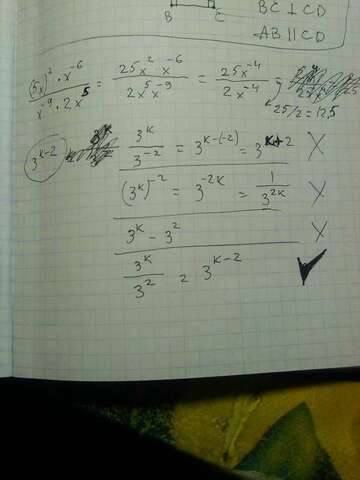 B C
BC ⊥ CD
AB || CD
(5x)² · x⁻⁶ / x⁻⁹ · 2x⁵ = 25x² x⁻⁶ / 2x⁵ x⁻⁹ = 25x⁻⁴ / 2x⁻⁴ =
25/2 = 12,5
3ᵏ⁻² 3ᵏ / 3⁻² = 3ᵏ⁻⁽⁻²⁾ = 3ᵏ⁺² X
(3ᵏ)⁻² = 3⁻²ᵏ = 1 / 3²ᵏ X
3ᵏ - 3² X
3ᵏ / 3² = 3ᵏ⁻² ✓